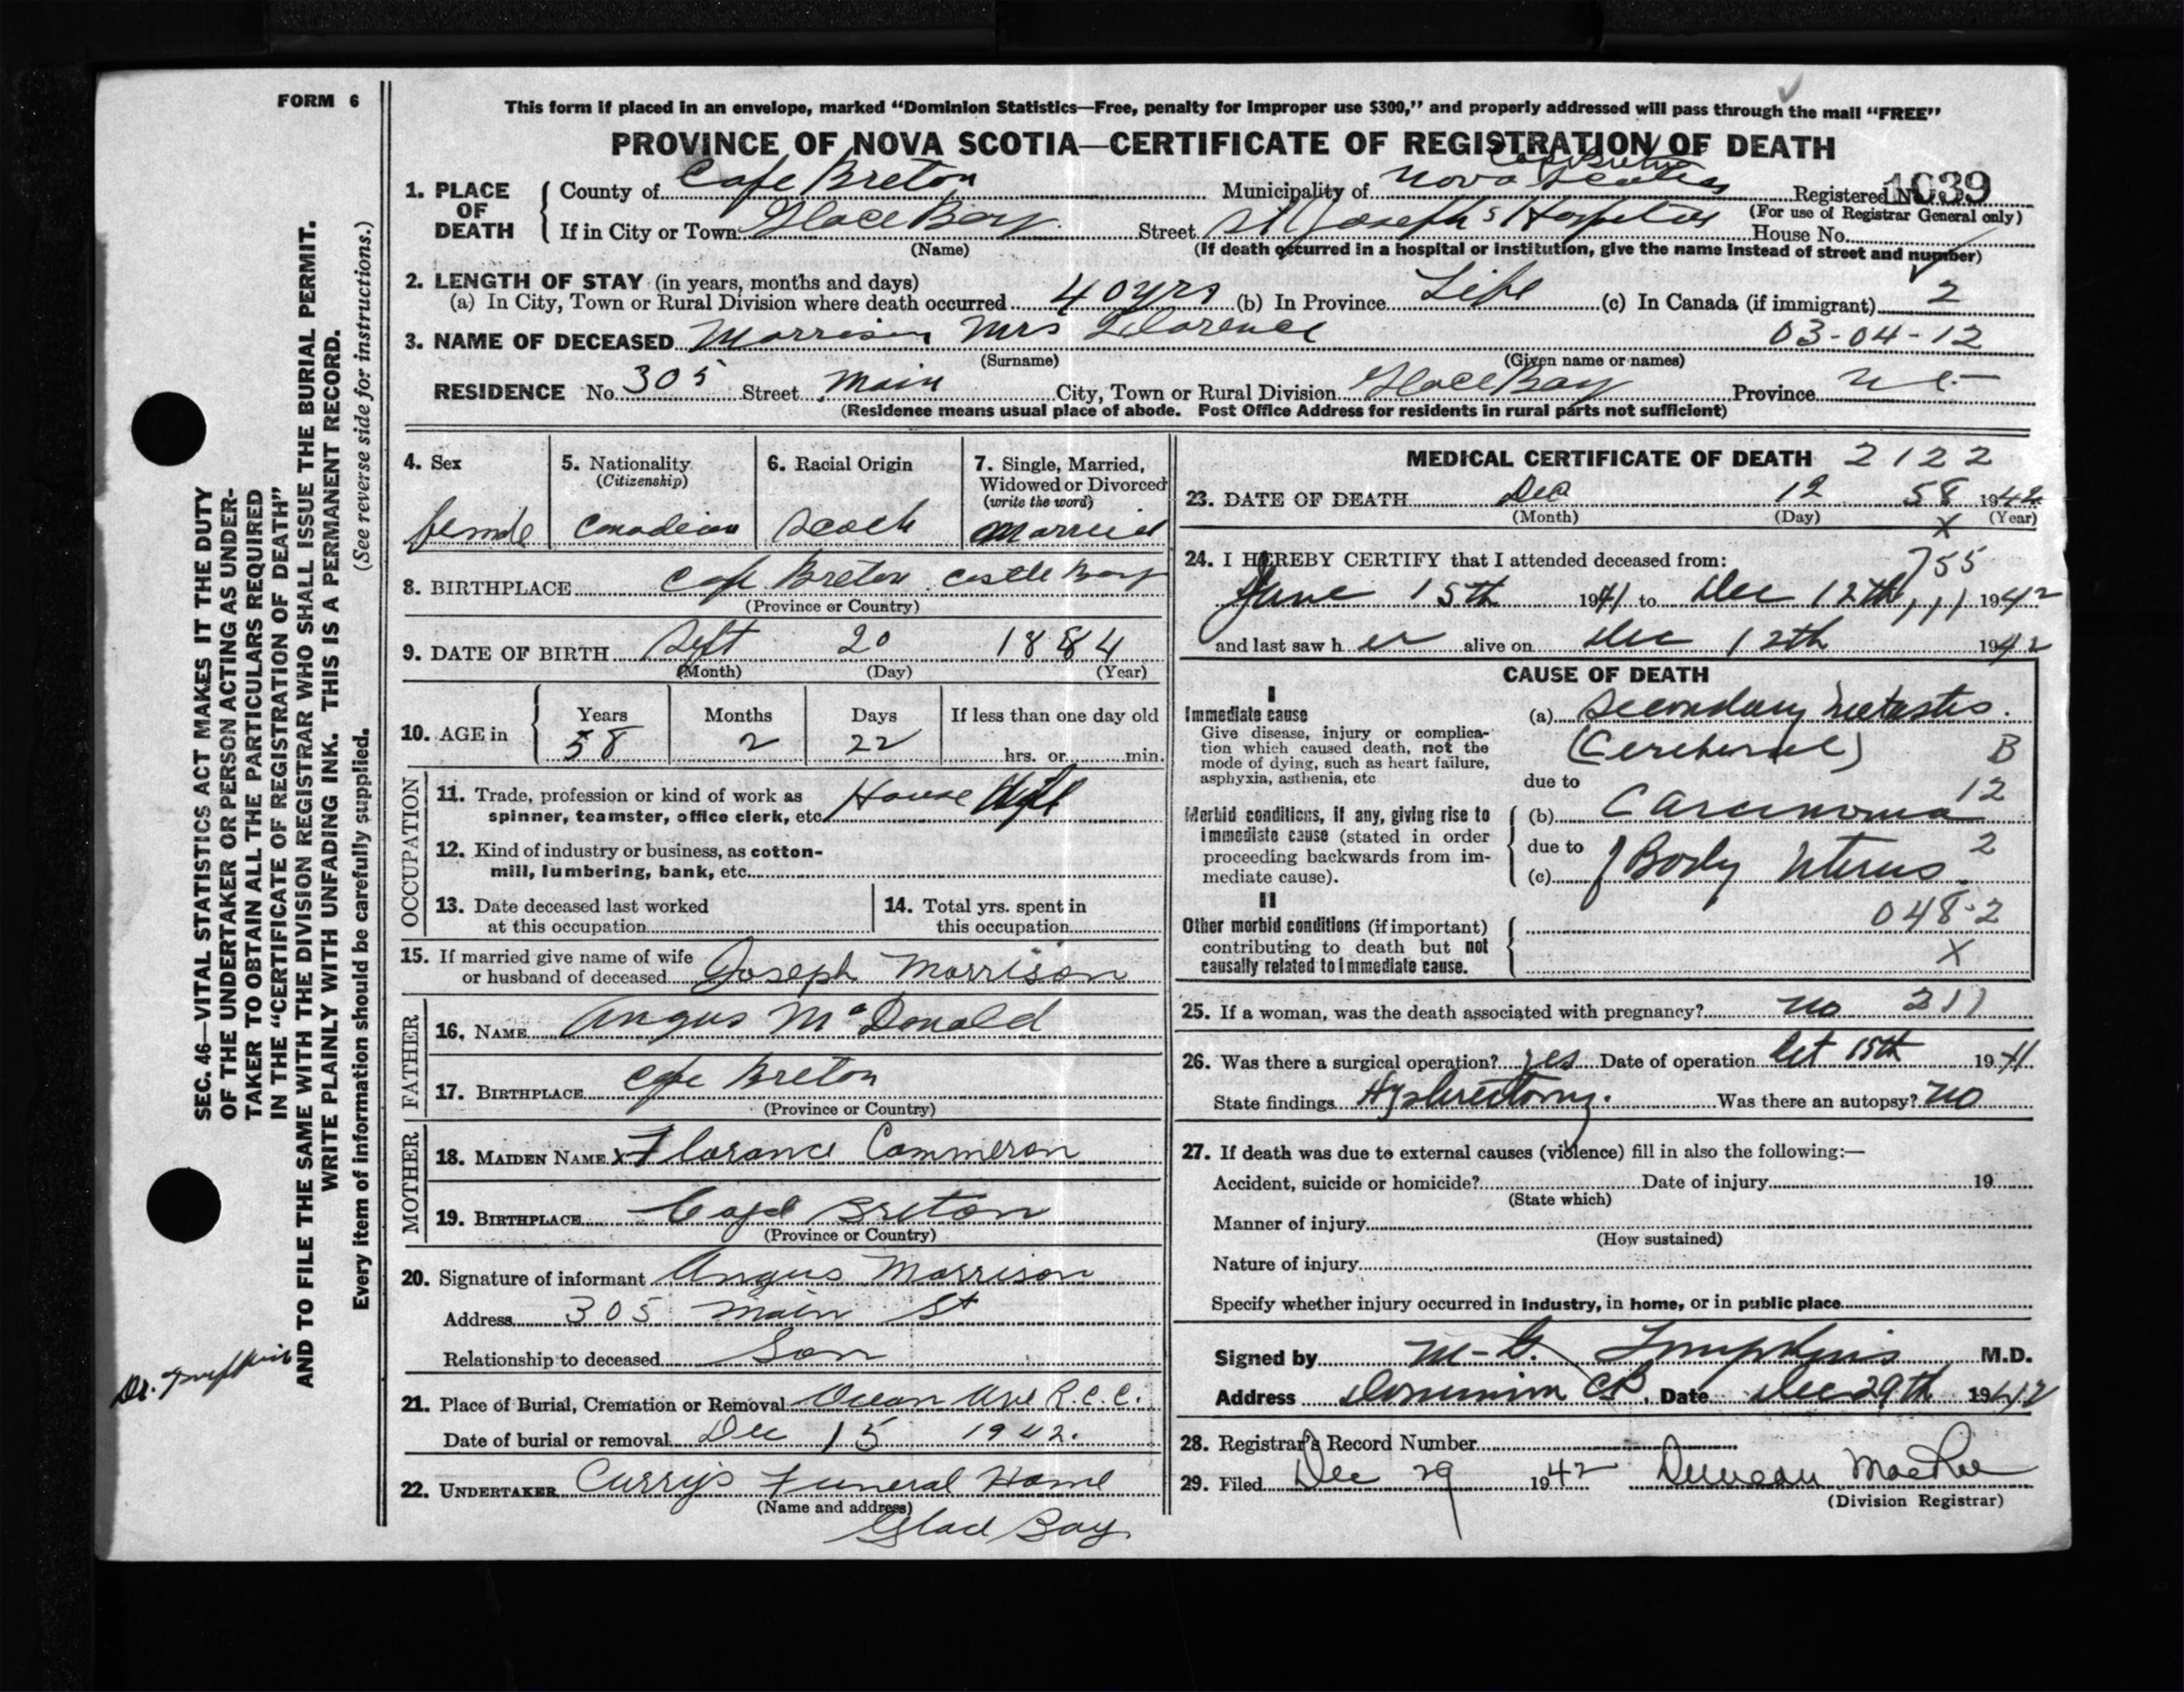 FORM 6
This form if placed in an envelope, marked “Dominion Statistics—Free, penalty for improper use $300,” and properly addressed will pass through the mail “FREE”
PROVINCE OF NOVA SCOTIA—CERTIFICATE OF REGISTRATION OF DEATH
Cape Breton
1. PLACE OF DEATH County of Cape Breton Municipality of Nova Scotia Registered No. 1039
(For use of Registrar General only)
If in City or Town Glace Bay Street St Joseph's Hospital House No.
(Name) (If death occurred in a hospital or institution, give the name instead of street and number)
2. LENGTH OF STAY (in years, months and days)
(a) In City, Town or Rural Division where death occurred 40 yrs (b) In Province Life (c) In Canada (if immigrant) 2
3. NAME OF DECEASED Morrison Mrs Florence 03-04-12
(Surname) (Given name or names)
RESIDENCE No. 305 Street Main City, Town or Rural Division Glace Bay Province
(Residence means usual place of abode. Post Office Address for residents in rural parts not sufficient)
4. Sex female
5. Nationality (Citizenship) Canadian
6. Racial Origin Scotch
7. Single, Married, Widowed or Divorced (write the word) Married
8. BIRTHPLACE Cape Breton Castle Bay
(Province or Country)
9. DATE OF BIRTH Sept 20 1884
(Month) (Day) (Year)
10. AGE in Years 58 Months 2 Days 22 If less than one day old hrs. or min.
OCCUPATION
11. Trade, profession or kind of work as House Wife
spinner, teamster, office clerk, etc.
12. Kind of industry or business, as cotton-
mill, lumbering, bank, etc.
13. Date deceased last worked at this occupation
14. Total yrs. spent in this occupation
15. If married give name of wife
or husband of deceased Joseph Morrison
FATHER
16. NAME Angus McDonald
17. BIRTHPLACE Cape Breton
(Province or Country)
MOTHER
18. MAIDEN NAME x Florance Cammeron
19. BIRTHPLACE Cape Breton
(Province or Country)
20. Signature of informant Angus Morrison
Address 305 Main St
Relationship to deceased Son
21. Place of Burial, Cremation or Removal Ocean Ave R.C.C.
Date of burial or removal Dec 15 1942.
22. UNDERTAKER Curry's Funeral Home
(Name and address)
Glace Bay
MEDICAL CERTIFICATE OF DEATH 2122
23. DATE OF DEATH Dec 12 58 1942
(Month) (Day) X (Year)
24. I HEREBY CERTIFY that I attended deceased from: 755
June 15th 1941 to Dec 12th 111 1942
and last saw h er alive on Dec 12th 1942
CAUSE OF DEATH
I
Immediate cause (a) Secondary Metastis.
Give disease, injury or complica-
tion which caused death, not the
mode of dying, such as heart failure,
asphyxia, asthenia, etc
(Cerebral) B
due to 12
Morbid conditions, if any, giving rise to
immediate cause (stated in order
proceeding backwards from im-
mediate cause).
(b) Carcinoma
due to 2
(c) of Body Uterus.
II 048-2
Other morbid conditions (if important)
contributing to death but not
causally related to immediate cause.
X
25. If a woman, was the death associated with pregnancy? no 211
26. Was there a surgical operation? yes Date of operation Oct 15th 1941
State findings Hysterectomy. Was there an autopsy? no
27. If death was due to external causes (violence) fill in also the following:—
Accident, suicide or homicide? Date of injury 19
(State which)
Manner of injury
(How sustained)
Nature of injury
Specify whether injury occurred in industry, in home, or in public place
Signed by M. G. Tompkins M.D.
Address Dominion CB. Date Dec 29th 1942
28. Registrar's Record Number
29. Filed Dec 29 1942 Duncan MacRae
(Division Registrar)
SEC. 46—VITAL STATISTICS ACT MAKES IT THE DUTY
OF THE UNDERTAKER OR PERSON ACTING AS UNDER-
TAKER TO OBTAIN ALL THE PARTICULARS REQUIRED
IN THE “CERTIFICATE OF REGISTRATION OF DEATH”
AND TO FILE THE SAME WITH THE DIVISION REGISTRAR WHO SHALL ISSUE THE BURIAL PERMIT.
WRITE PLAINLY WITH UNFADING INK. THIS IS A PERMANENT RECORD.
Every item of information should be carefully supplied. (See reverse side for instructions.)
Dr. Tompkins